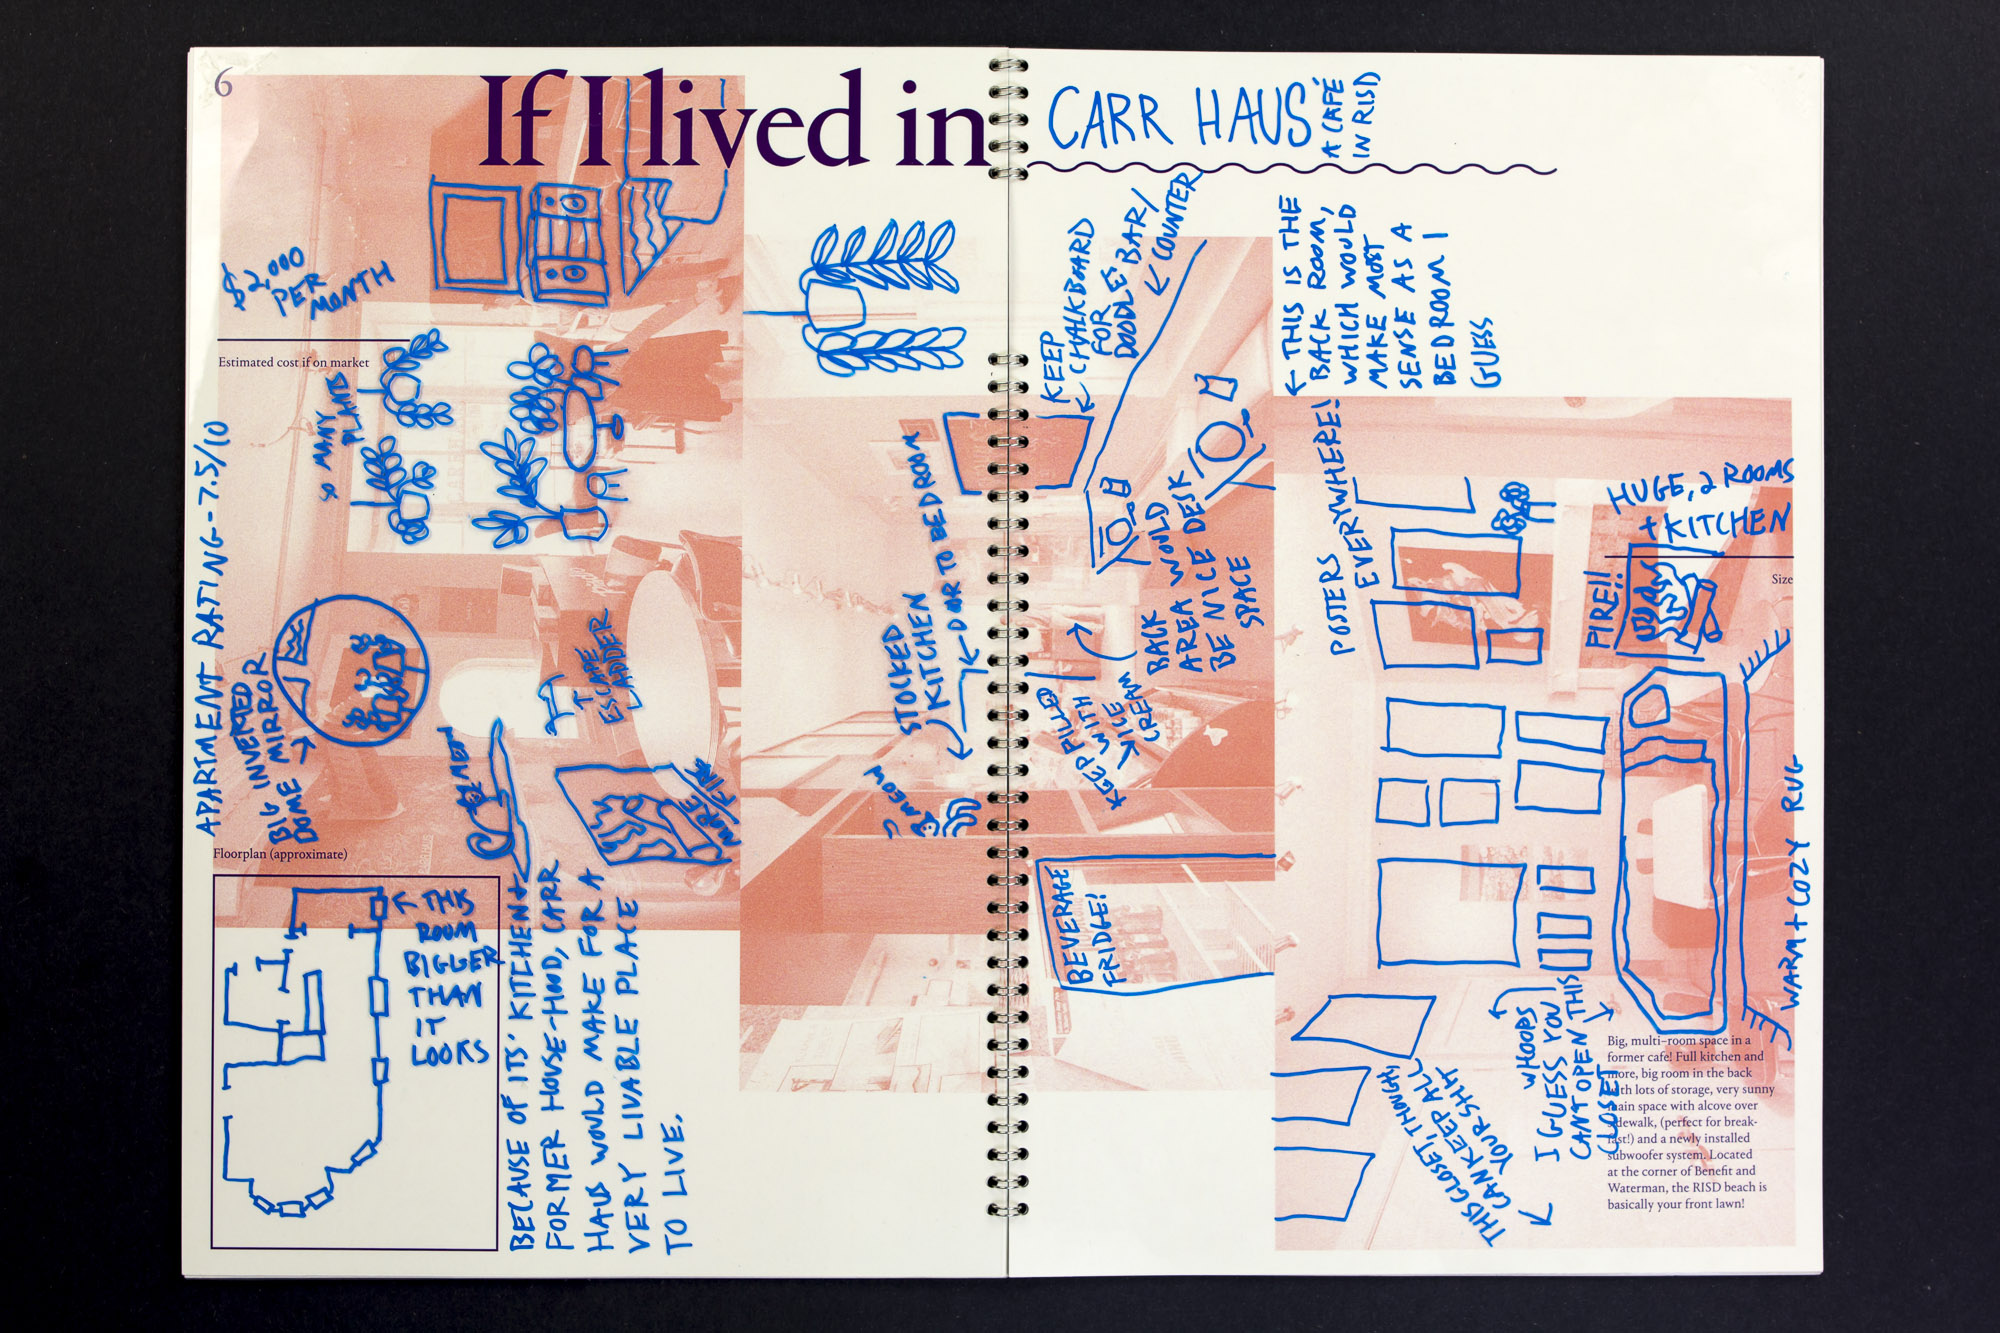 6
If I lived in
CARR HAUS
A CAFÉ
IN RISD
$2,000
PER
MONTH
Estimated cost if on market
SO MANY
PLANTS
APARTMENT RATING - 7.5/10
BIG INVERTED
DOME MIRROR
MEOW
ESCAPE
LADDER
MORE FIRE
Floorplan (approximate)
← THIS
ROOM
BIGGER
THAN
IT
LOOKS
BECAUSE OF ITS' KITCHEN +
FORMER HOUSE-HOOD, CARR
HAUS WOULD MAKE FOR A
VERY LIVABLE PLACE
TO LIVE.
STOCKED
KITCHEN
← DOOR TO BEDROOM
MEOW
KEEP
CHALKBOARD
FOR
DOODLES
BAR/
COUNTER
BACK
AREA WOULD
BE NICE DESK
SPACE
KEEP FILLED
WITH
ICE
CREAM
BEVERAGE
FRIDGE!
← THIS IS THE
BACK ROOM,
WHICH WOULD
MAKE MOST
SENSE AS A
BEDROOM I
GUESS
POSTERS
EVERYWHERE!
HUGE, 2 ROOMS
+ KITCHEN
Size
FIRE!!
WARM + COZY RUG
WHOOPS
I GUESS YOU
CAN'T OPEN THIS
CLOSET
THIS CLOSET, THOUGH,
CAN KEEP ALL
YOUR SHIT
Big, multi-room space in a
former cafe! Full kitchen and
more, big room in the back
with lots of storage, very sunny
main space with alcove over
sidewalk, (perfect for break-
fast!) and a newly installed
subwoofer system. Located
at the corner of Benefit and
Waterman, the RISD beach is
basically your front lawn!